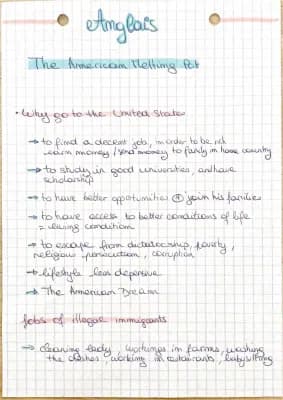 Anglais
The American Melting Pot
• Why go to the United States
→ to find a decent job, in order to be rich
earn money / send money to family in home country
→ to study in good universities, and have
scholarship
→ to have better opportunities join his families
→ to have access to better conditions of life
= living conditions
→ to escape from dictatorship, poverty,
religious persecution, corruption
→ lifestyle less
→ The American Dream
Jobs of illegal immigrants
→ cleaning lady, workings in farms, washing
the dishes, working in restaurants, babysitting